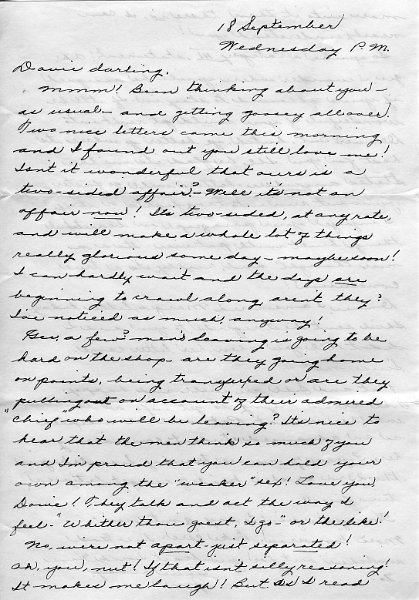 18 September
Wednesday P.M.
Davie darling,
Mmm! Been thinking about you -
as usual - and getting goosey all over!
Two nice letters came this morning
and I found out you still love me!
Isn't it wonderful that ours is a
two-sided affair? - Well it's not an
affair now! Its two-sided, at any rate,
and will make a whole lot of things
really glorious some day - maybe soon!
I can hardly wait and the days are
beginning to crawl along aren't they?
I've noticed as much, anyway!
Gee, a few? men leaving is going to be
hard on the shop - are they going home
on points, being transferred or are they
pulling out on account of their admired
"Chief" who will be leaving? Its nice to
hear that the men think so much of you
and I'm proud that you can hold your
own among the "weaker" sex! Love you
Davie! They talk and act the way I
feel - "Whither thou goest, I go" - or the like!
No, we're not apart - just separated!
Oh, you, nut! If that isn't silly reasoning!
It makes me laugh! But as I read